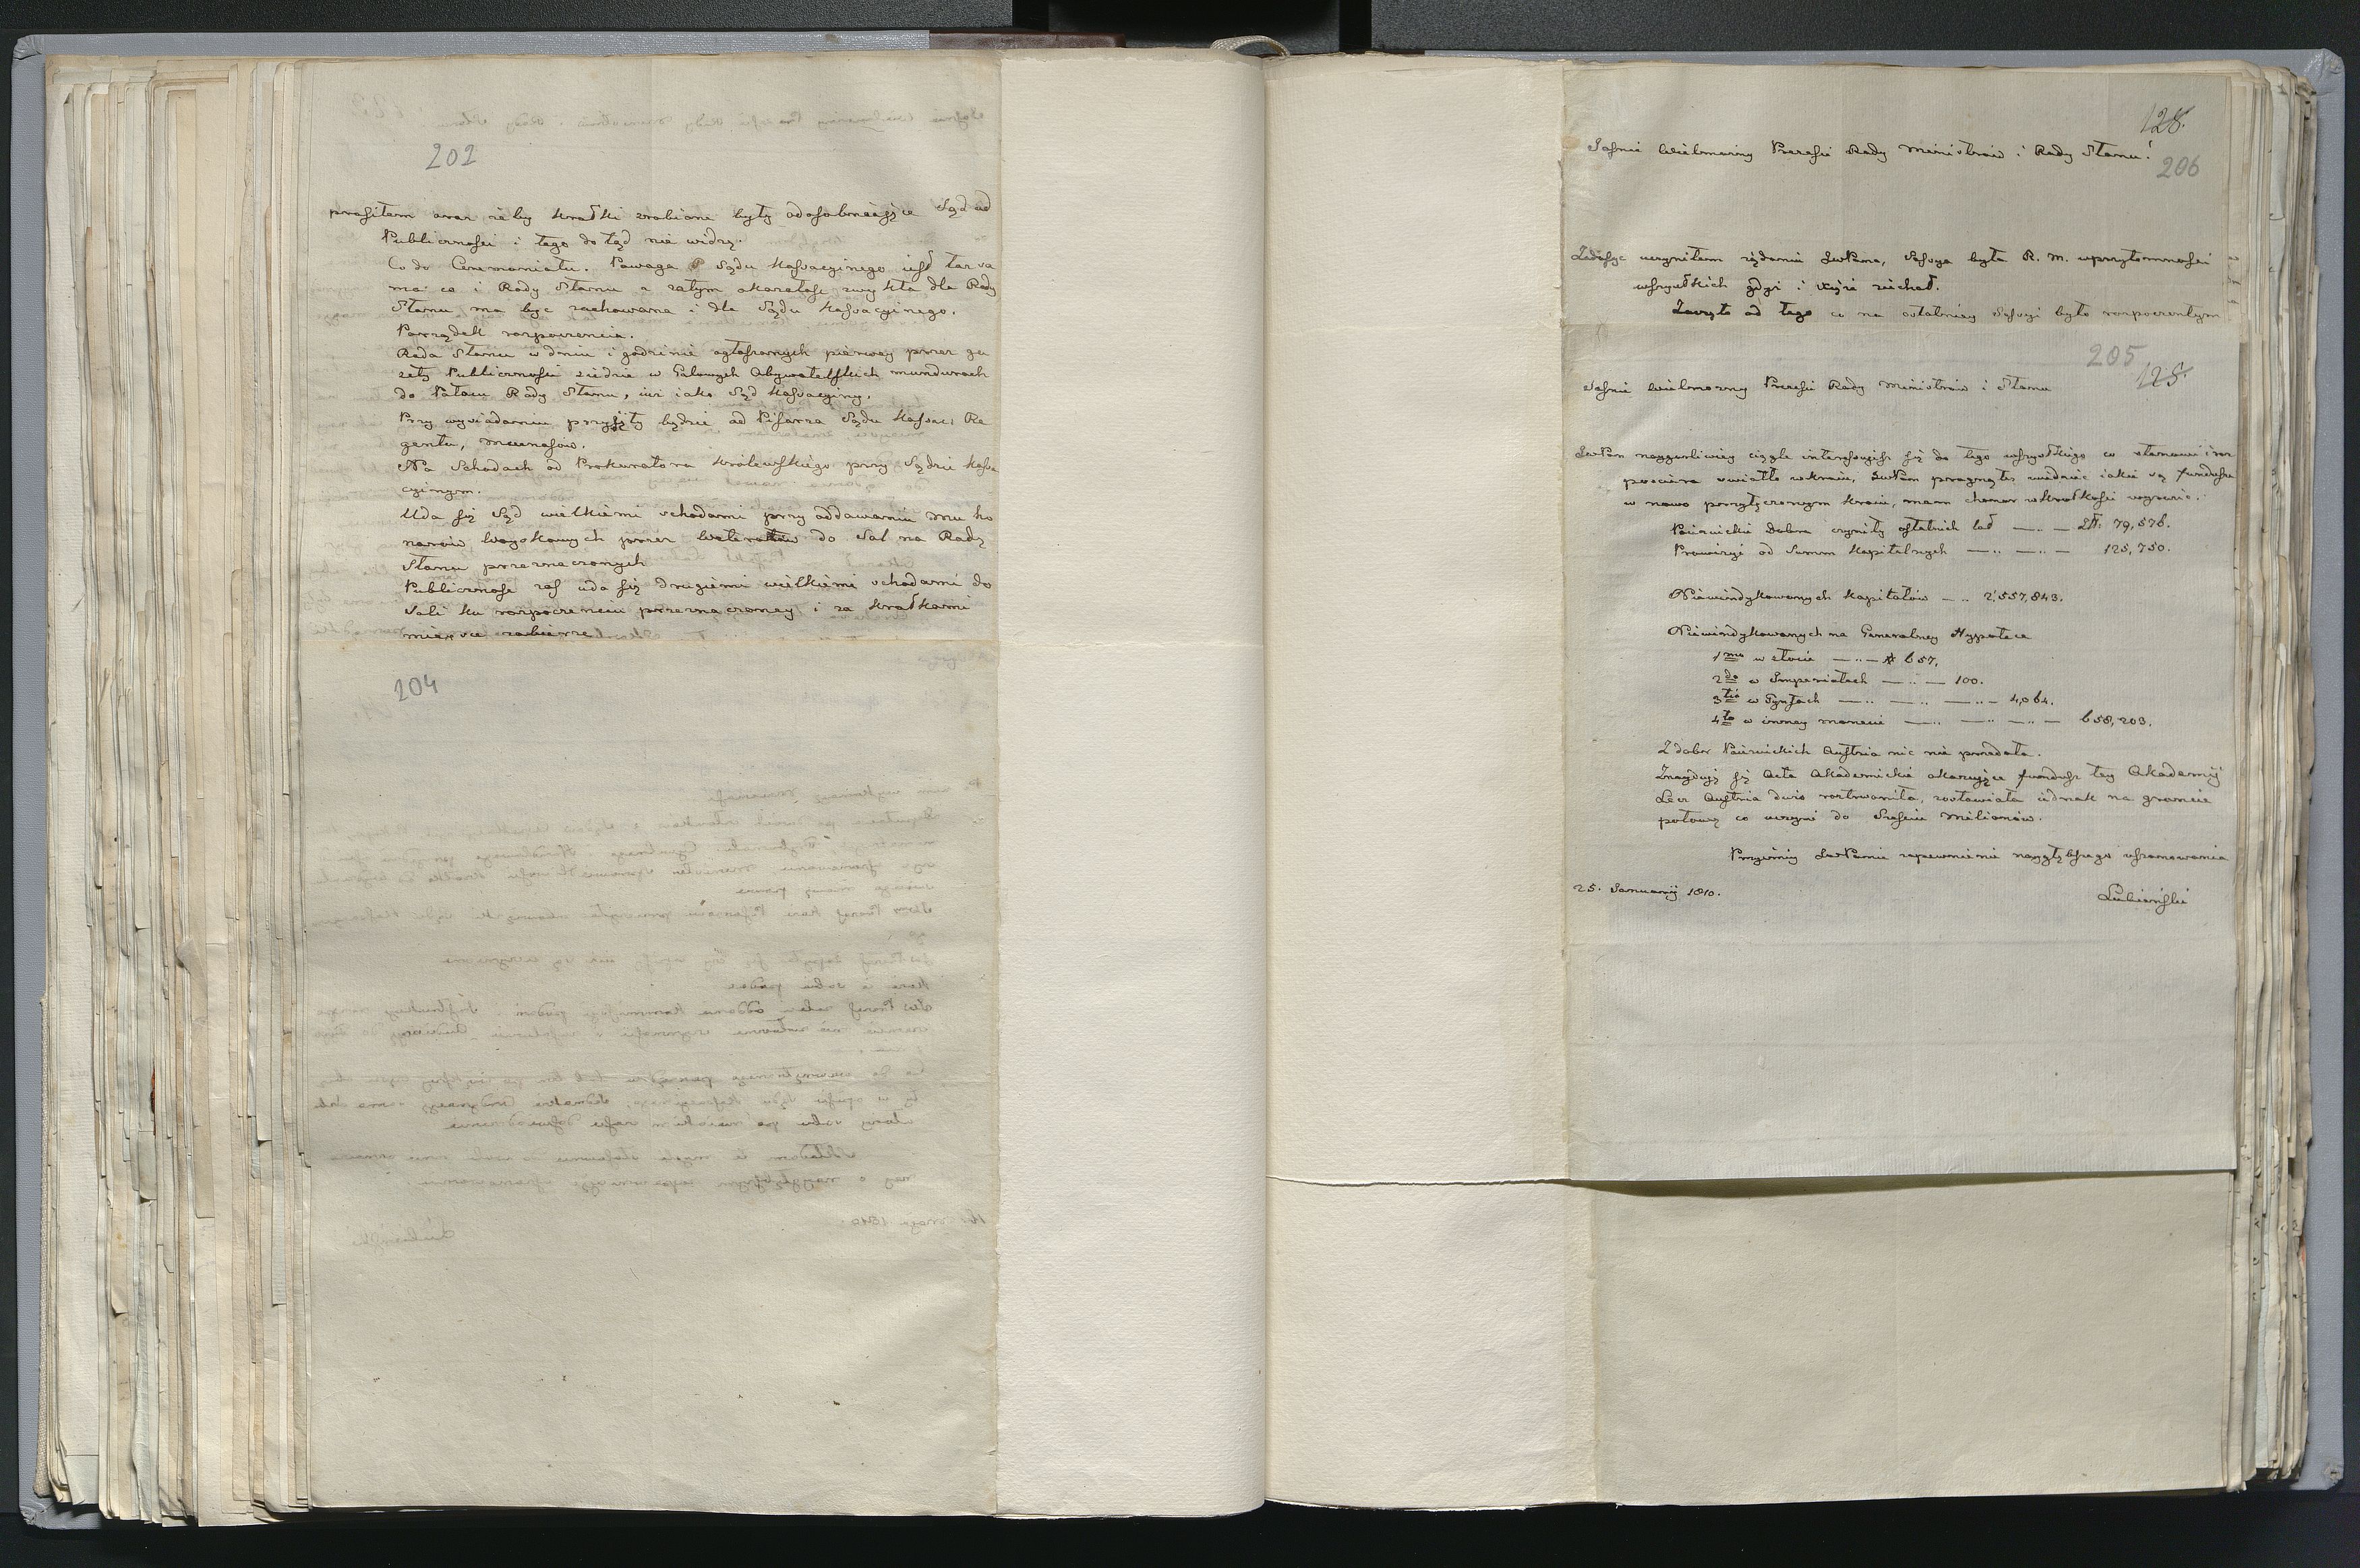 202
prosiłem oraz żeby kratki zrobione były odosobniaiące Sąd od
Publicznosci i tego do tąd nie widzę.
Co do Ceremoniału. Powaga Sądu Kassacyinego iest taż sa
ma co i Rady Stanu a zatym okazałosc zwykła dla Rady
Stanu ma byc zachowana i dla Sądu Kassacyinego.
Porządek rozpoczęcia.
Rada Stanu w dniu i godzinie ogłoszonych pierwey przez ga
zety Publicznosci ziedzie w Galowych Obywatelskich mundurach
do Pałacu Rady Stanu, iuż iako Sąd Kassacyiny.
Przy wysiadaniu przyięty będzie od Pisarza Sądu Kassac: Re
genta, Mecenasów.
Na Schodach od Prokuratora Królewskiego przy Sądzie Kassa
cyinym.
Uda się Sąd wielkiemi schodami przy oddawaniu mu ho
norów Woyskowych przez Weteranów do Sal na Radę
Stanu przeznaczonych
Publicznosc zas uda się drugiemi wielkiemi schodami do
Sali ku rozpoczęciu przeznaczoney i za kratkami
mieysce zabierze
204
128.
Jasnie Wielmożny Prezesie Rady Ministrów i Rady Stanu!
206
Zadosyc uczyniłem żądaniu JwPana, Sessya była R. M. w przytomnosci
wszystkich gdyż i Xże ziechał.
Zaczęto od tego co na ostatniey Sessyi było rozpoczętym
205
128.
Jasnie Wielmożny Prezesie Rady Ministrów i Stanu
JwPan naygorliwiey ciągle interessuiesz się do tego wszystkiego co stanowi i roz
posciera swiatło w kraiu, JwPan pragnąłes wiedziec iakie są fundusze
w nowo przyłączonym kraiu, mam honor w krotkosci wyrazic.
Poiezuickie Dobra czyniły ostatnich lat — „ — Zł: 79,576.
Prowizyi od Summ Kapitalnych — „ — „ — 125,750.
Niewindykowanych Kapitałów — „ 2,557,843.
Niewindykowanych na Generalney Hypotece
1mo w złocie — „ — # 657.
2do w Imperiałach — „ — 100.
3tio w Tynfach — „ — „ — „ — 4,064.
4to w inney monecie — „ — „ — „ — 658,203.
Z dobr Poiezuickich Austria nic nie przedała.
Znayduią się Acta Akademickie okazuiące fundusz tey Akademij
Lecz Austria dużo roztrwoniła, zostawiała iednak na gruncie
połowę co uczyni do Szesciu Milionów.
Przyimiy JwPanie zapewnienie naygłębszego uszanowania
25. Januarij 1810.
Lubieński